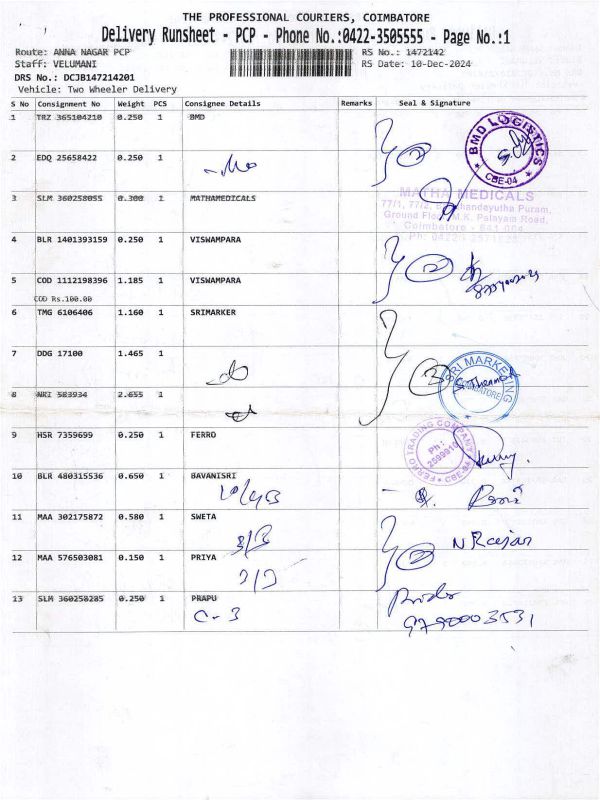 THE PROFESSIONAL COURIERS, COIMBATORE
Delivery Runsheet - PCP - Phone No.:0422-3505555 - Page No.:1
Route: ANNA NAGAR PCP RS No.: 1472142
Staff: VELUMANI RS Date: 10-Dec-2024
DRS No.: DCJB147214201
Vehicle: Two Wheeler Delivery
S No Consignment No Weight PCS Consignee Details Remarks Seal & Signature
1 TRZ 365104210 0.250 1 BMD
BMD LOGISTICS
CBE-04
2 EDQ 25658422 0.250 1
2
3 SLM 360258055 0.300 1 MATHAMEDICALS
MATHA MEDICALS
Ground Floor, M.K. Palayam Road,
4 BLR 1401393159 0.250 1 VISWAMPARA
2
5 COD 1112198396 1.185 1 VISWAMPARA
COD Rs.100.00
6 TMG 6106406 1.160 1 SRIMARKER
7 DDG 17100 1.465 1
3
SRI MARKETING
COIMBATORE
8 NRI 583934 2.655 1
9 HSR 7359699 0.250 1 FERRO
FERRO TRADING COMPANY
Ph:
10 BLR 480315536 0.650 1 BAVANISRI
11 MAA 302175872 0.580 1 SWETA
3/3
N Rajan
12 MAA 576503081 0.150 1 PRIYA
2
13 SLM 360258285 0.250 1 PRAPU
C-3
9790003531